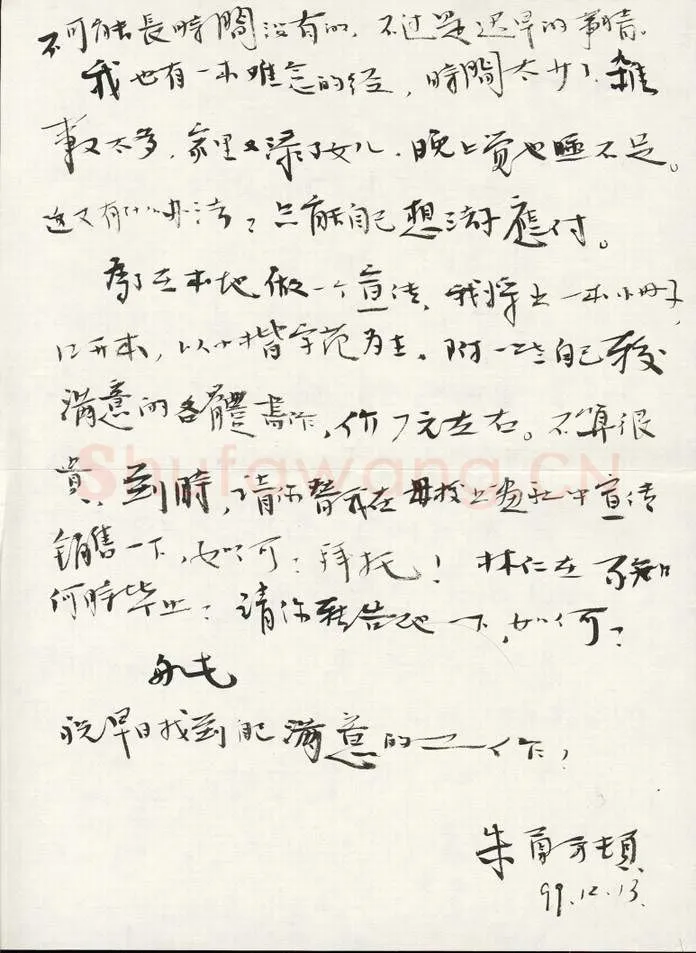 不可能長時間没有的，不过是迟早的事情。
我也有一本难念的经，時間太少，雜
事又太多，家里又添了女儿，晚上觉也睡不足。
这又有什么办法？只能自己想法子應付。
為了在本地做一个宣传，我将出一本小册子，
12开本，以小楷字范为主。附一些自己较
满意的各體書作，价7元左右。不算很
貴，到時，請你替我在母校书画社中宣传
销售一下，如何？拜托！林仁在不知
何時毕业？請你转告他一下，如何？
祝早日找到配满意的工作，
朱勇方頓首
99.12.13.
Shufawang.CN